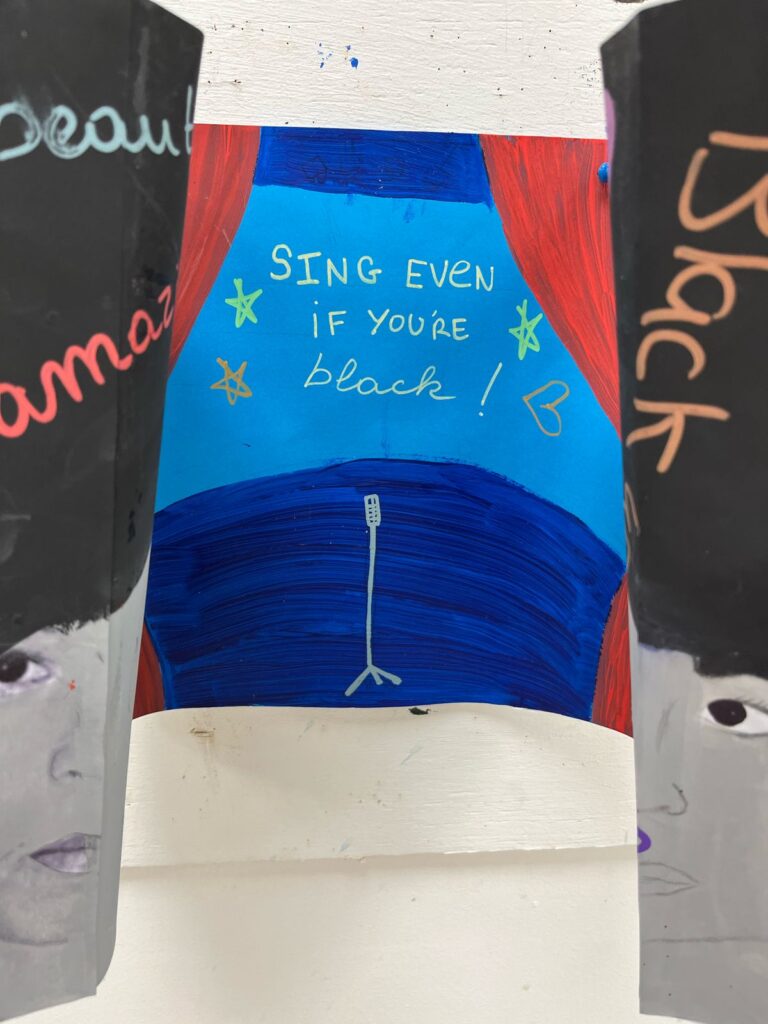 beaut
amaz
SING EVEN
iF YOU'RE
black!
Black